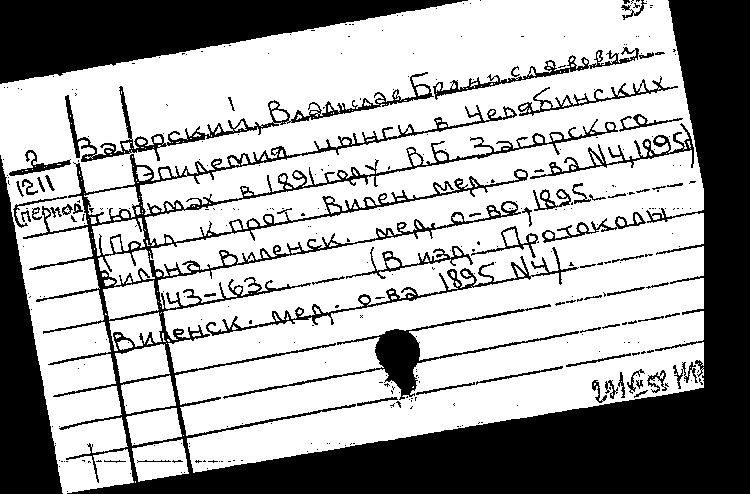 Загорский, Владислав Брониславович
Эпидемия цынги в Челябинских
тюрьмах в 1891 году. В.Б. Загорского.
(Прил к прот. Вилен. мед. о-ва N4, 1895г)
Вильна, Виленск. мед. о-во, 1895.
143-163с. (В изд.: Протоколы
Виленск. мед. о-ва 1895 N4).
2
1211
(период)